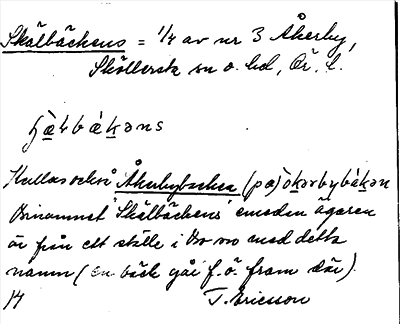 Skälbäckens = 1/4 av nr 3 Åkerby,
Sköllersta sn o. hd, Ör. l.
Kallas också Åkerbybacken (pa) òkərbybákən
Binamnet 'Skälbäckens' emedan ägaren
är från ett ställe i med detta
namn (en bäck går f.ö. fram där).
T. Ericsson